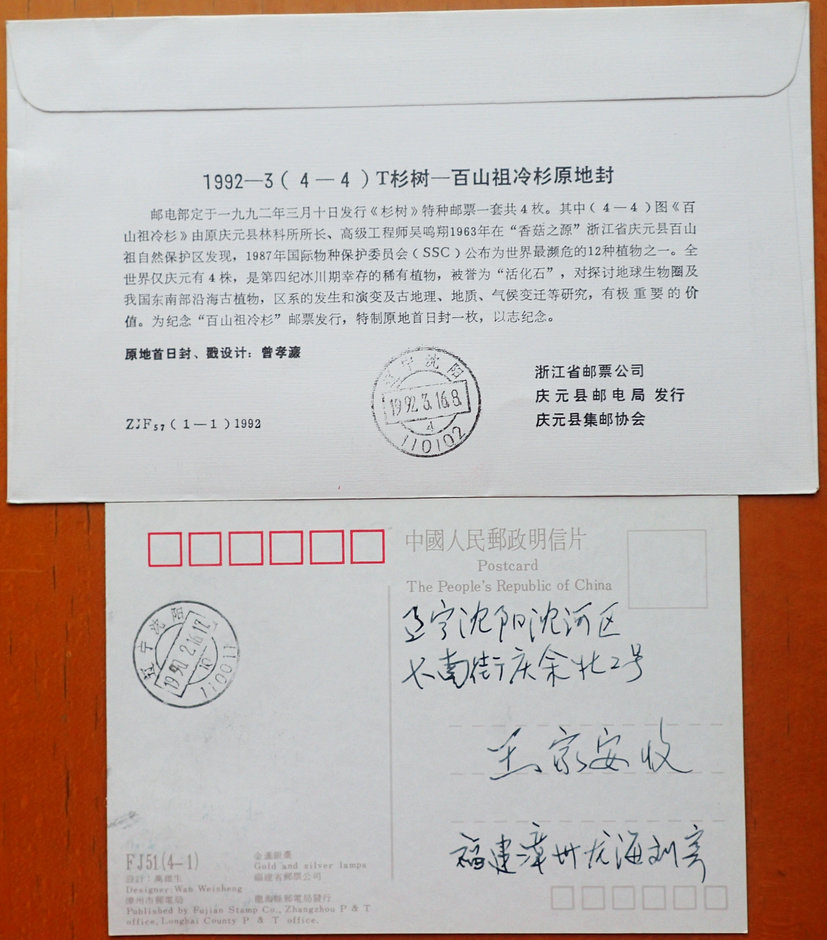 1992—3（4—4）T杉树—百山祖冷杉原地封
邮电部定于一九九二年三月十日发行《杉树》特种邮票一套共4枚。其中（4—4）图《百
山祖冷杉》由原庆元县林科所所长、高级工程师吴鸣翔1963年在“香菇之源”浙江省庆元县百山
祖自然保护区发现，1987年国际物种保护委员会（SSC）公布为世界最濒危的12种植物之一。全
世界仅庆元有4株，是第四纪冰川期幸存的稀有植物，被誉为“活化石”，对探讨地球生物圈及
我国东南部沿海古植物，区系的发生和演变及古地理、地质、气候变迁等研究，有极重要的价
值。为纪念“百山祖冷杉”邮票发行，特制原地首日封一枚，以志纪念。
原地首日封、戳设计：曾孝濂
浙江省邮票公司
庆元县邮电局 发行
庆元县集邮协会
ZJF57（1—1）1992
辽宁沈阳
1992.3.16.8
d
110102
中國人民郵政明信片
Postcard
The People's Republic of China
辽宁沈阳
110011
辽宁沈阳沈河区
大南街庆余北2号
王家安收
福建漳州龙海刘
FJ51(4-1)
Gold and silver lamps
福建省郵票公司
Designer: Wan Weisheng
漳州市郵電局
龍海縣郵電局發行
Published by Fujian Stamp Co., Zhangzhou P & T
office, Longhai County P & T office.